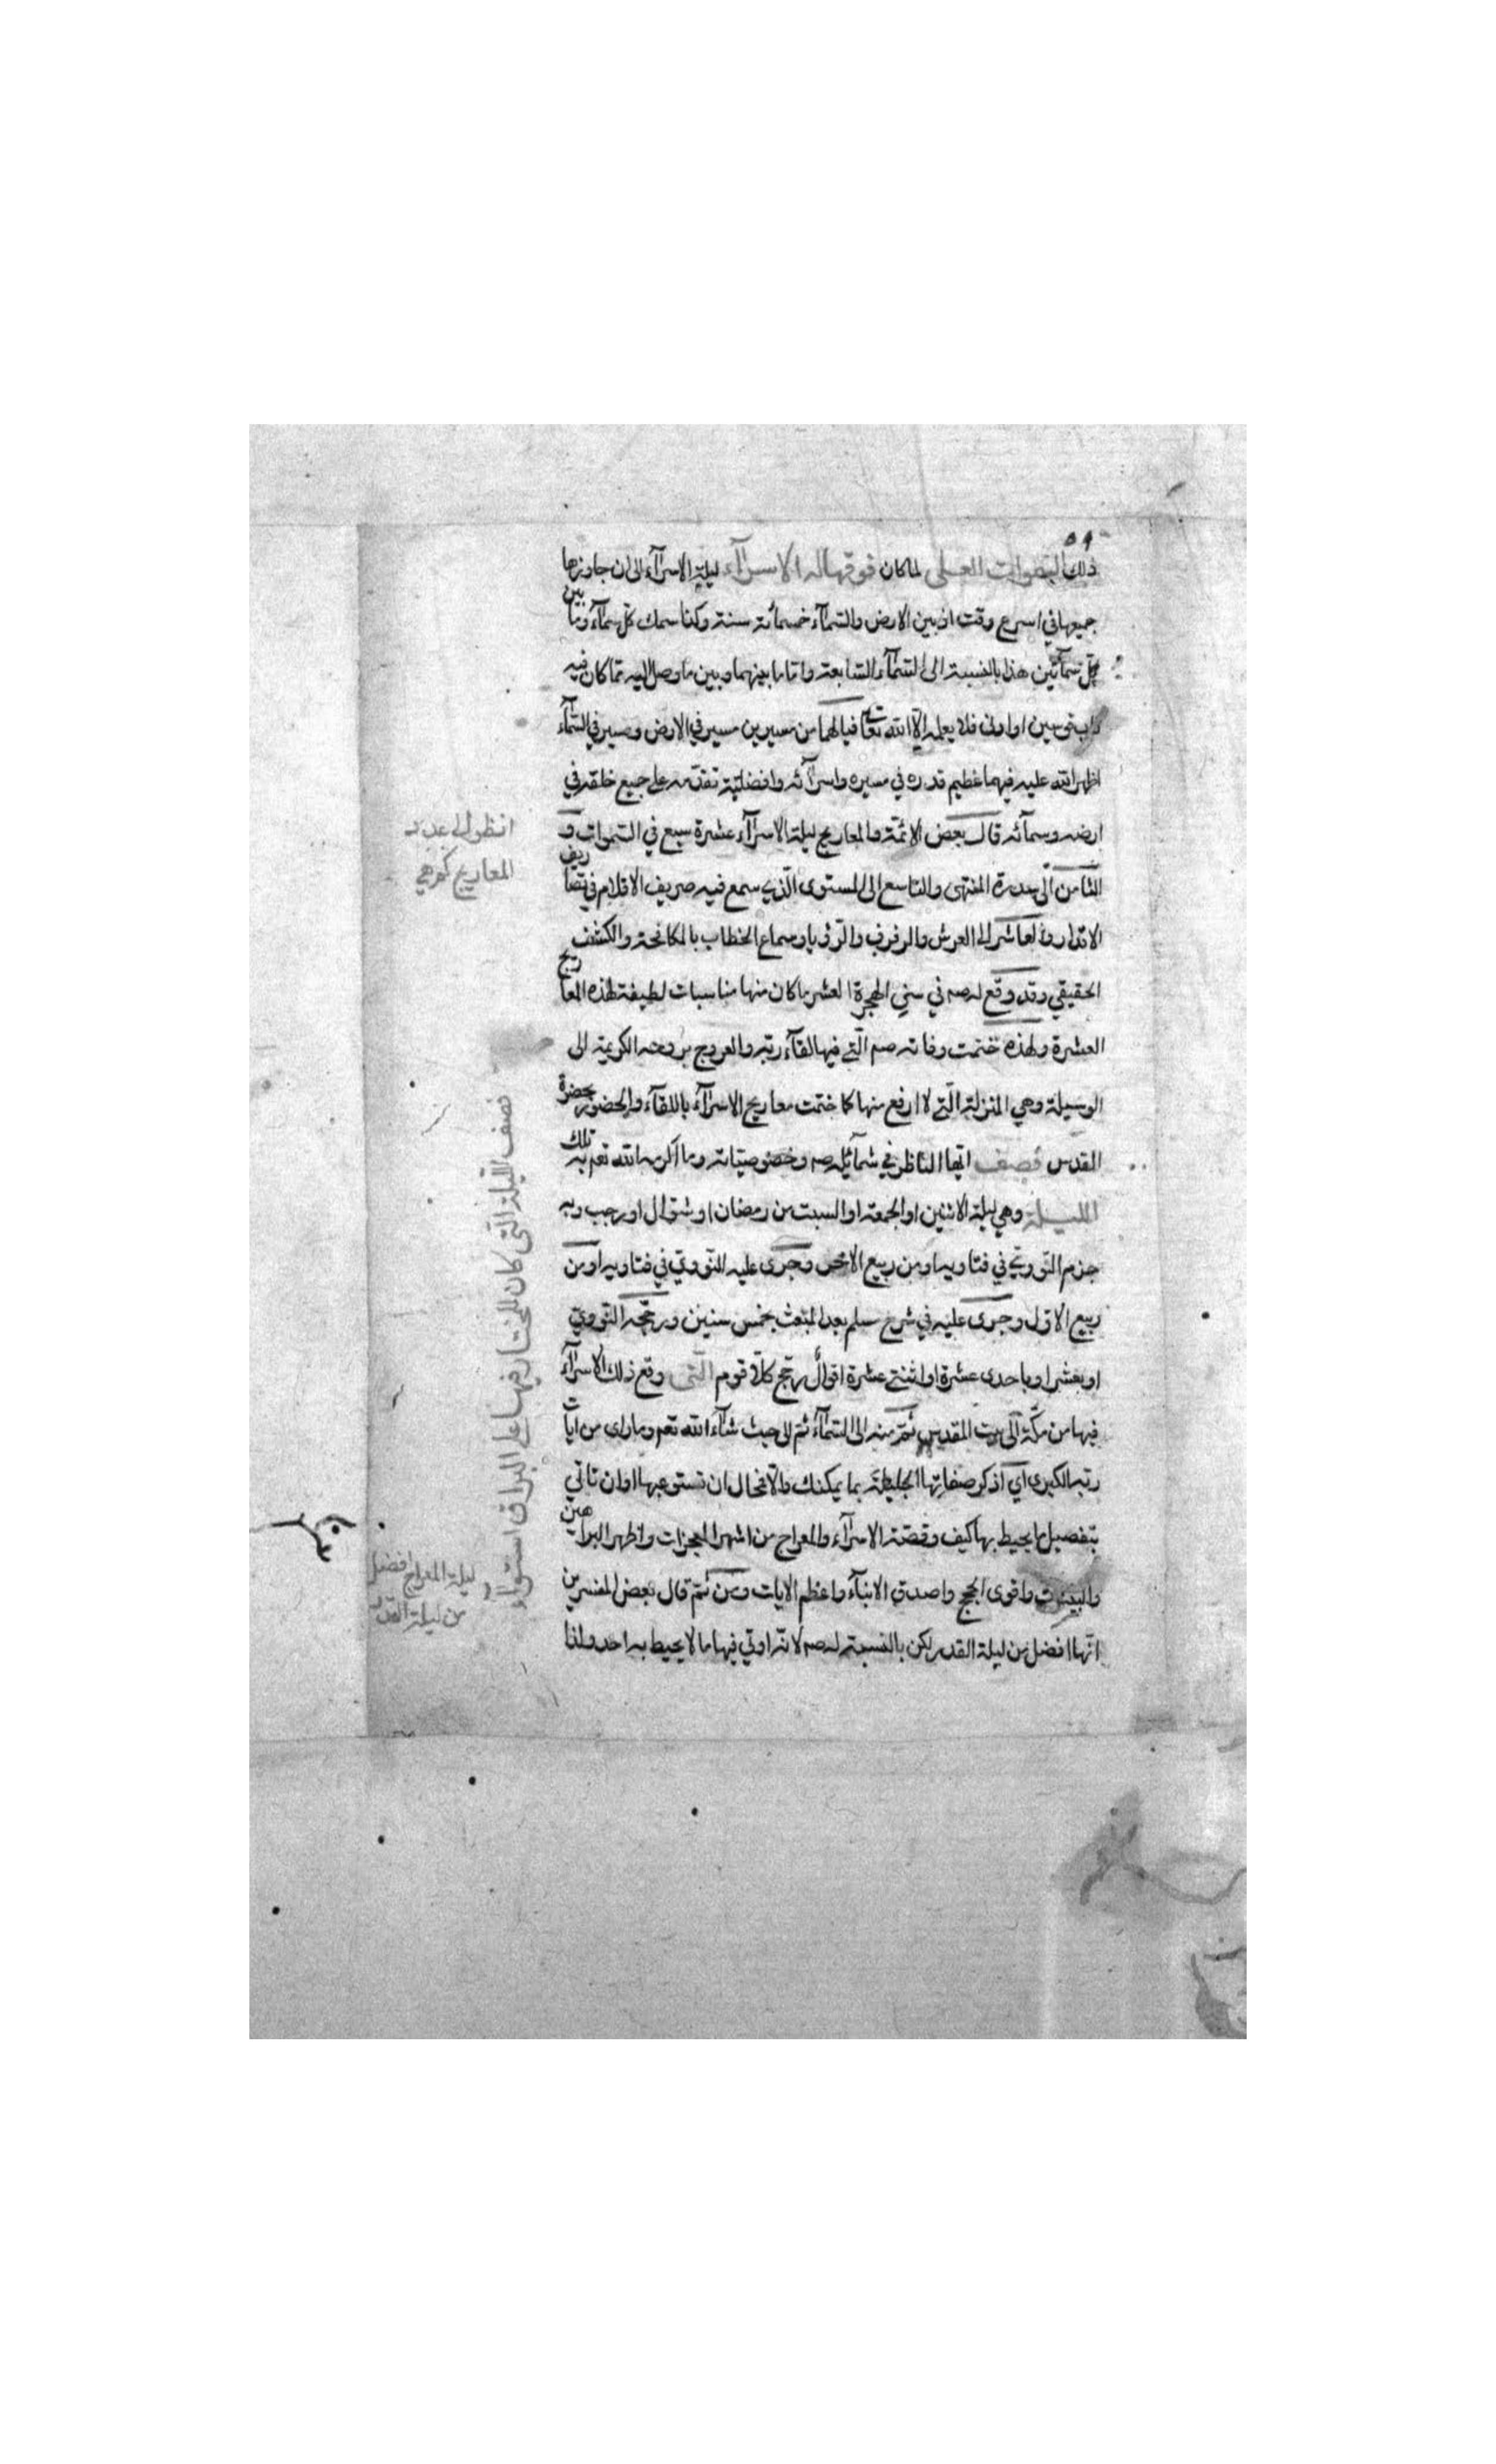 ٥٩
ذلك السموات العلى لما كان فوقها له الاسرآء ليلة الاسرآء الى ان جاوزها
جميعها في اسرع وقت اذ بين الارض والسمآء خمسمائة سنة وكذا سمك كل سمآء وما بين
كل سمآئين هذا بالنسبة الى السمآء السابعة واما ما بينهما وبين ما وصل اليه مما كان فيه
قاب قوسين او ادنى فلا يعلمه الا الله تعالى فيا لهما من مسيرين مسير في الارض ومسير في السمآء
اظهر الله عليه فيهما عظيم قدره في مسيره واسرآئه وافضلية تقدمه على جميع خلقه في
ارضه وسمآئه قال بعض الائمة والمعاريج ليلة الاسرآء عشرة سبع في السموات و
الثامن الى سدرة المنتهى والتاسع الى المستوى الذي سمع فيه صريف الاقلام في تصاريف
الاقدار والعاشر الى العرش والرفرف والرؤيا وسماع الخطاب بالمكافحة والكشف
الحقيقي وقد وقع له صم في سني الهجرة العشر ما كان منها مناسبات لطيفة لهذه المعاريج
العشرة ولهذه ختمت وفاته صم التي فيها لقآء ربه والعروج بروحه الكريمة الى
الوسيلة وهي المنزلة التي لا ارفع منها كما ختمت معاريج الاسرآء باللقآء والحضور بحضرة
القدس فصف ايها الناظر في شمآئله صم وخصوصياته وما اكرمه الله تعم به تلك
الليلة وهي ليلة الاثنين او الجمعة او السبت من رمضان او شوال او رجب وبه
جزم النووي في فتاويه او من ربيع الاخر وجرى عليه النووي في فتاويه او من
ربيع الاول وجرى عليه في شرح مسلم بعد المبعث بخمس سنين ورجحه النووي
او بعشر او باحدى عشرة او اثنتي عشرة اقوال رجح كلا قوم التي وقع ذلك الاسرآء
فيها من مكة الى بيت المقدس ثم منه الى السمآء ثم الى حيث شآء الله تعم وما راى من ايات
ربه الكبرى اي اذكر صفاتها الجليلة بما يمكنك والا فمحال ان تستوعبها او ان تاتي
بتفصيل ما يحيط بها كيف وقصة الاسرآء والمعراج من اشهر المعجزات واظهر البراهين
والبينات واقوى الحجج واصدق الانبآء واعظم الايات ومن ثم قال بعض المفسرين
انها افضل من ليلة القدر لكن بالنسبة له صم لانه اوتي فيها ما لا يحيط به احد ولذا
انظر الى عدد
المعاريج كم هي
فصف الليلة التي كان للمختار فيها على البراق استوآء
ليلة المعراج افضل
من ليلة القدر